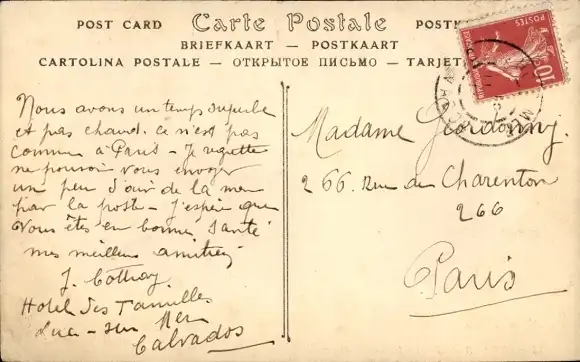 POST CARD Carte Postale POSTK
BRIEFKAART — POSTKAART
CARTOLINA POSTALE — ОТКРЫТОЕ ПИСЬМО — TARJET
10
POSTES
Nous avons un temps superbe
et pas chaud. Ce n'est pas
comme à Paris - Je regrette
ne pouvoir vous envoyer
un peu d'air de la mer
par la poste - J'espère que
vous êtes en bonne santé
mes meilleures amitiés
J. Cottray.
Hotel des Familles
Luc-sur Mer
Calvados
Madame
266. Rue de Charenton
266
Paris